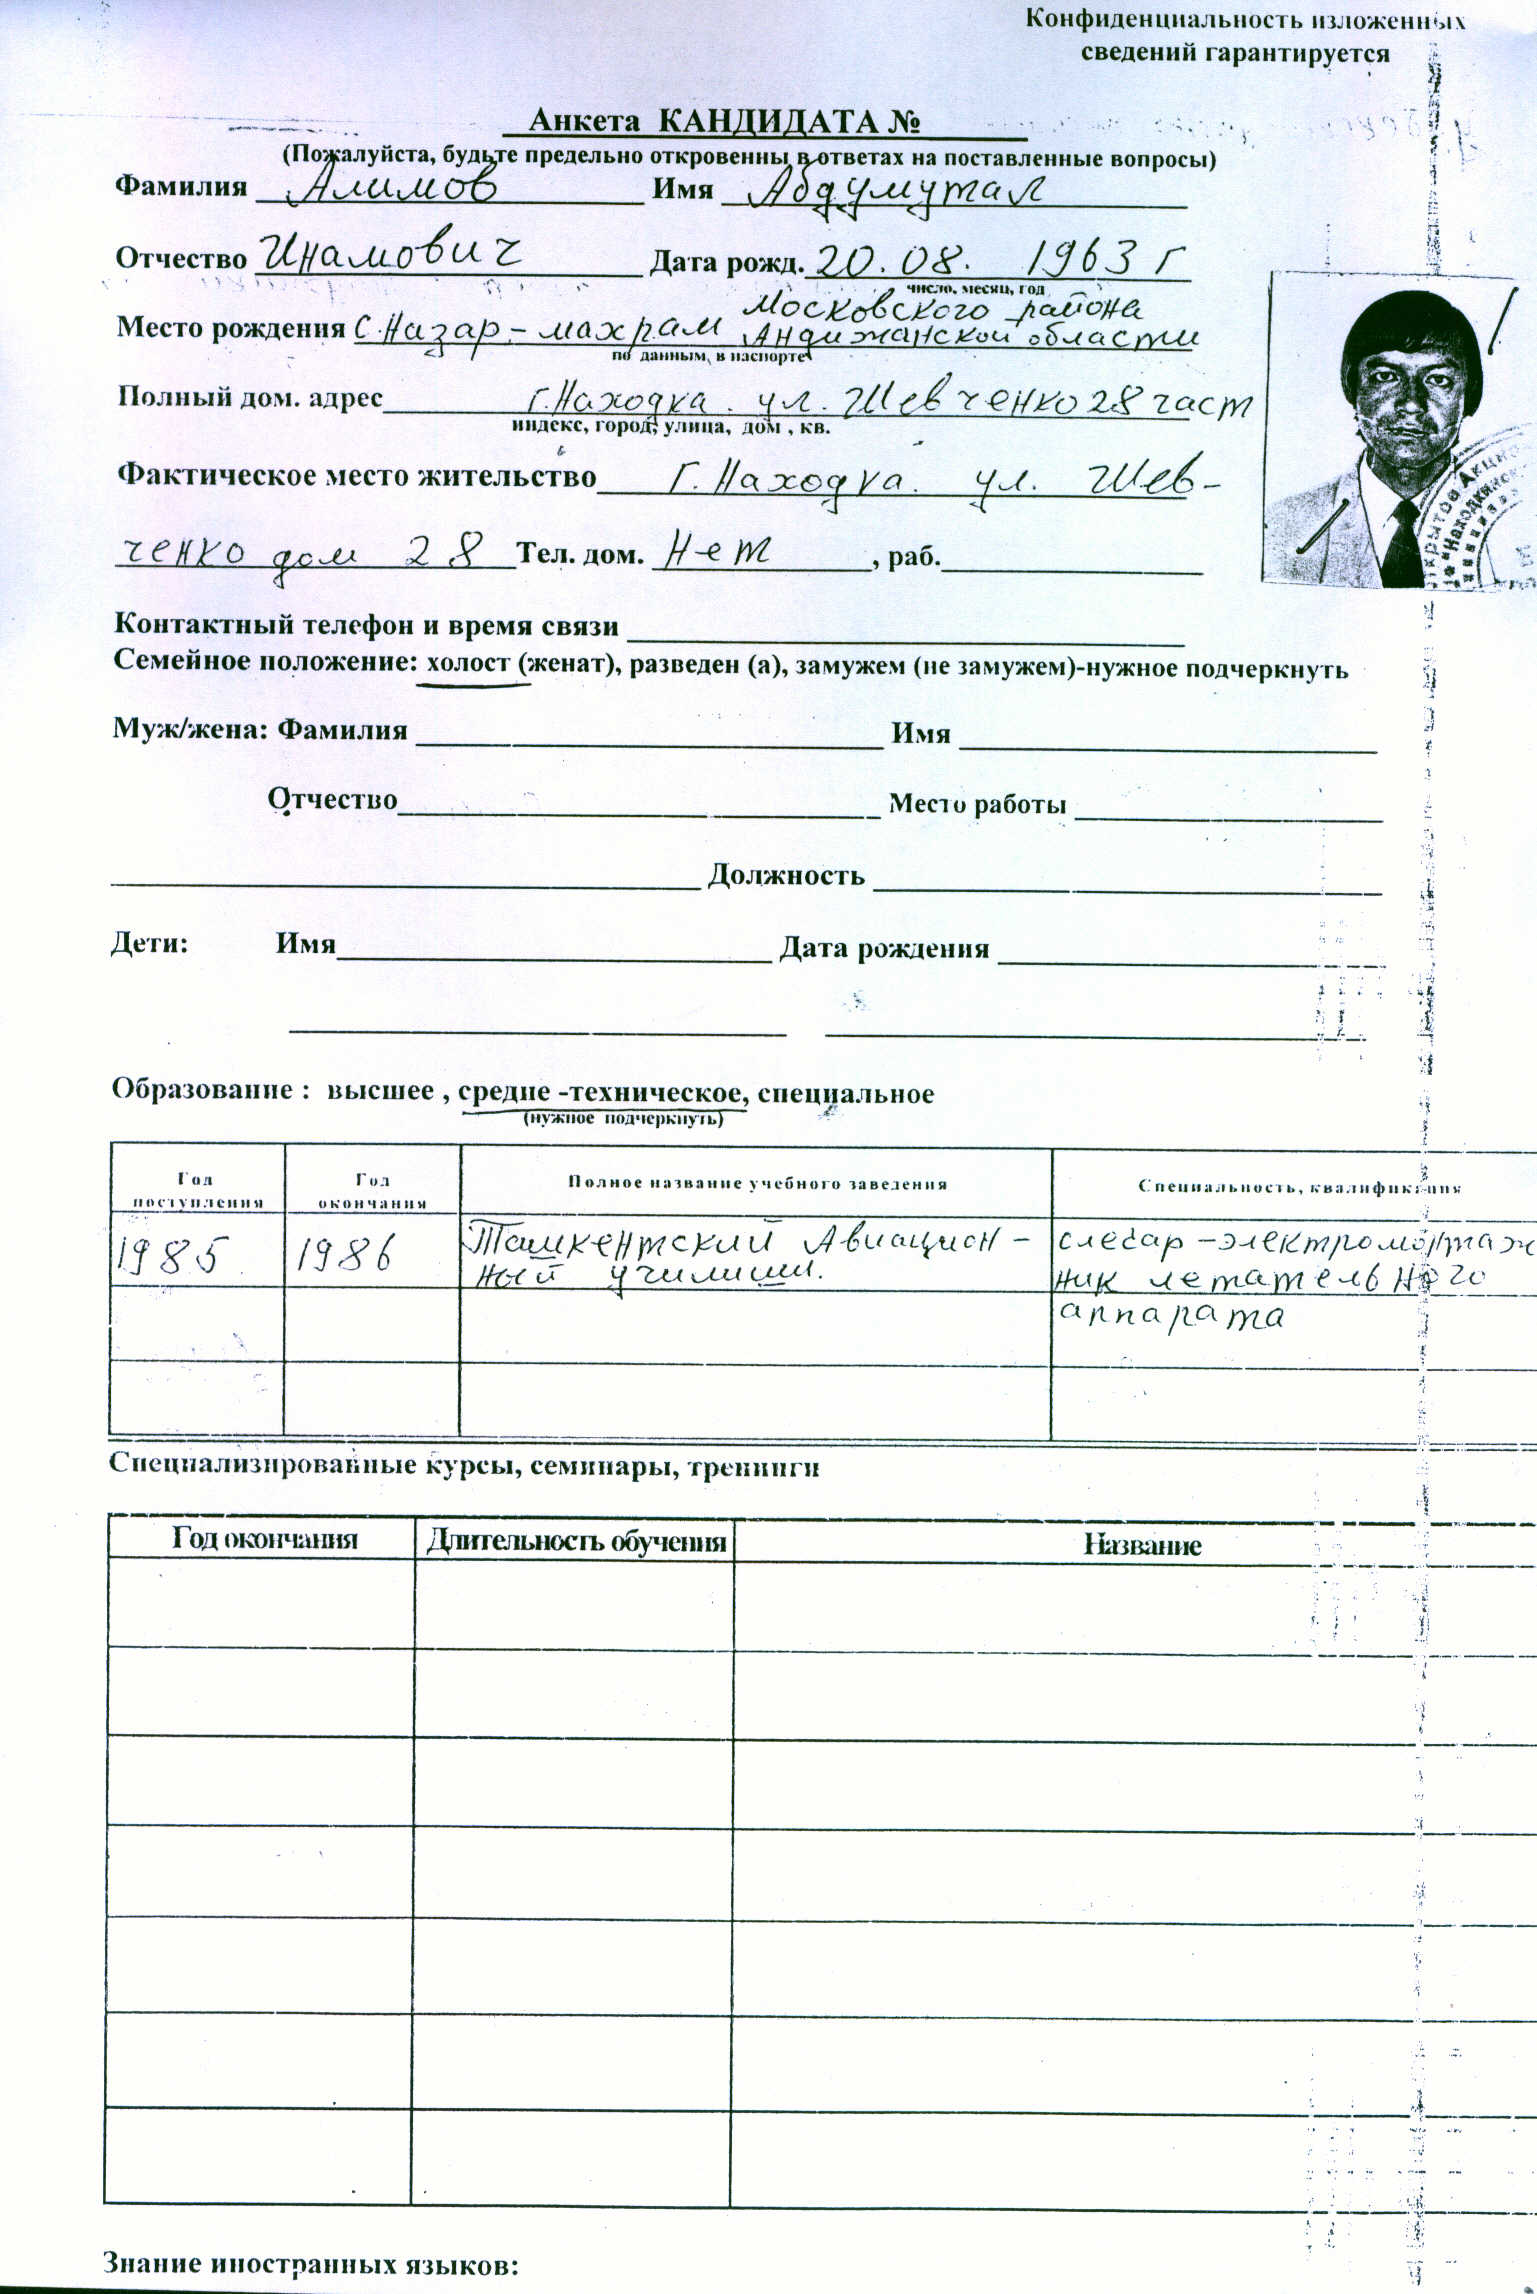 Конфиденциальность изложенных
сведений гарантируется
Анкета КАНДИДАТА №
(Пожалуйста, будьте предельно откровенны в ответах на поставленные вопросы)
Фамилия Алимов Имя Абдумутал
Отчество Инамович Дата рожд. 20.08. 1963 г
число, месяц, год
Московского района
Место рождения С.Назар-махрам Андижанской области
по данным в паспорте
Полный дом. адрес г.Находка. ул. Шевченко 28 част
индекс, город, улица, дом , кв.
Фактическое место жительство г.Находка. ул. Шев-
ченко дом 28 Тел. дом. Нет , раб.
Контактный телефон и время связи
Семейное положение: холост (женат), разведен (а), замужем (не замужем)-нужное подчеркнуть
Муж/жена: Фамилия Имя
Отчество Место работы
Должность
Дети: Имя Дата рождения
Образование : высшее , средне -техническое, специальное
(нужное подчеркнуть)
Год поступления Год окончания Полное название учебного заведения Специальность, квалификация
1985 1986 Ташкентский Авиацион- слесар-электромонтаж
ный училищи. ник летательного
аппарата
Специализированные курсы, семинары, тренинги
Год окончания Длительность обучения Название
Знание иностранных языков: